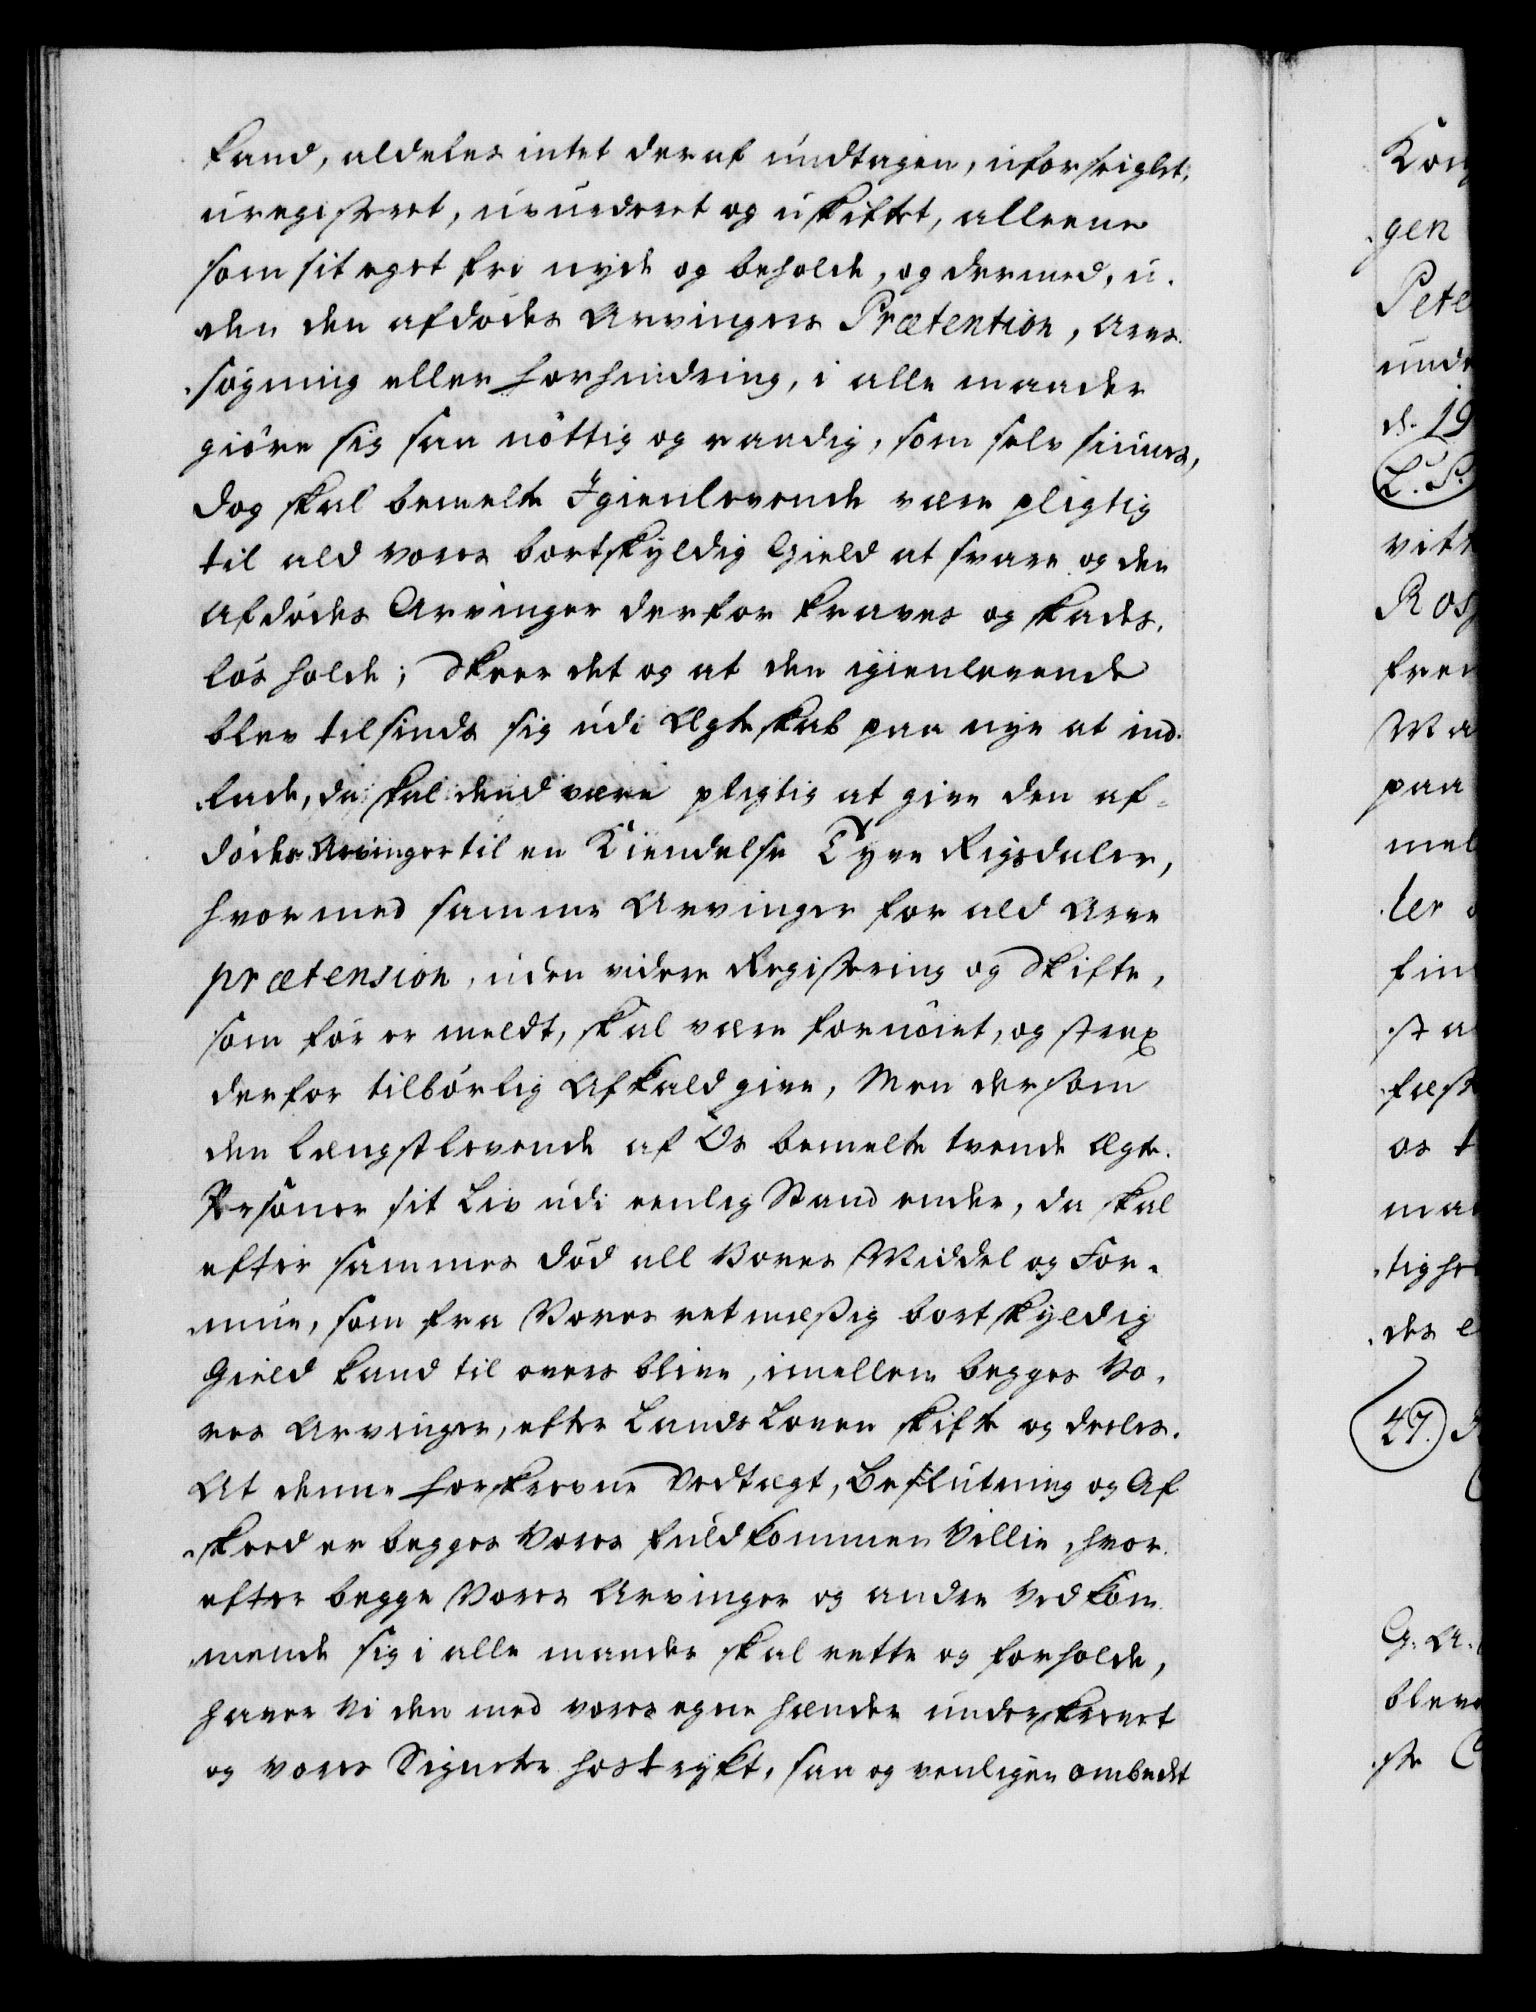 kand, aldeles intet deraf undtagen, uforseiglet,
uregistreret, uvurderet og uskiftet, alleene
som sit eget frj nyde og beholde, og dermed, u-
den den afdødes Arvingers Prætention, Arve-
søgning eller forhindring, i alle maader
giøre sig saa nøttig og raadig, som selv sinnes,
dog skal bemelte Igienlevende være pligtig
til ald vores bortskyldig Gield at svare og den
Afdødes Arvinger derfor kraves og skades-
løs holde; Skeer det og at den igienlevende
blev tilsinds sig udi Ægteskab paa nye at ind-
lade, da skal dend være pligtig at give den af-
dødes Arvinger til en Kiendelse Tyve Rigsdaler,
hvormed samme Arvinger for ald Arve
prætension, uden videre Registering og Skifte,
som før er meldt, skal være fornøiet, og strax
derfor tilbørlig Afkald give, Men dersom
den Længstlevende af Os bemelte tvende Ægte-
Persøner sit Liv udi eenlig Stand ender, da skal
efter sammes død all Vores Middel og For-
mue, som fra Vores retmæssig bortskyldig
Gield kand til overs blive, imellem begges Vo-
res Arvinger, efter Lands Loven skifte og deeles.
At denne forskrevne Vedtægt, Beslutning og Af
skeed er begges Vores fuldkommen Villie, hvor-
efter begge Vores Arvinger og andre Vedkom-
mende sig i alle maader skal rette og forholde,
haver Vi den med vores egne hænder underskrevet
og vores Signeter hostrykt, saa og venligen ombedet
Kon
gen
Pete
und
d. 19
L. S.
vit
Ros
frem
Ma
paa
mel
ler
fin
sta
fæst
os t
maa
tighe
des e
47.
G. A.
bleve
ste C